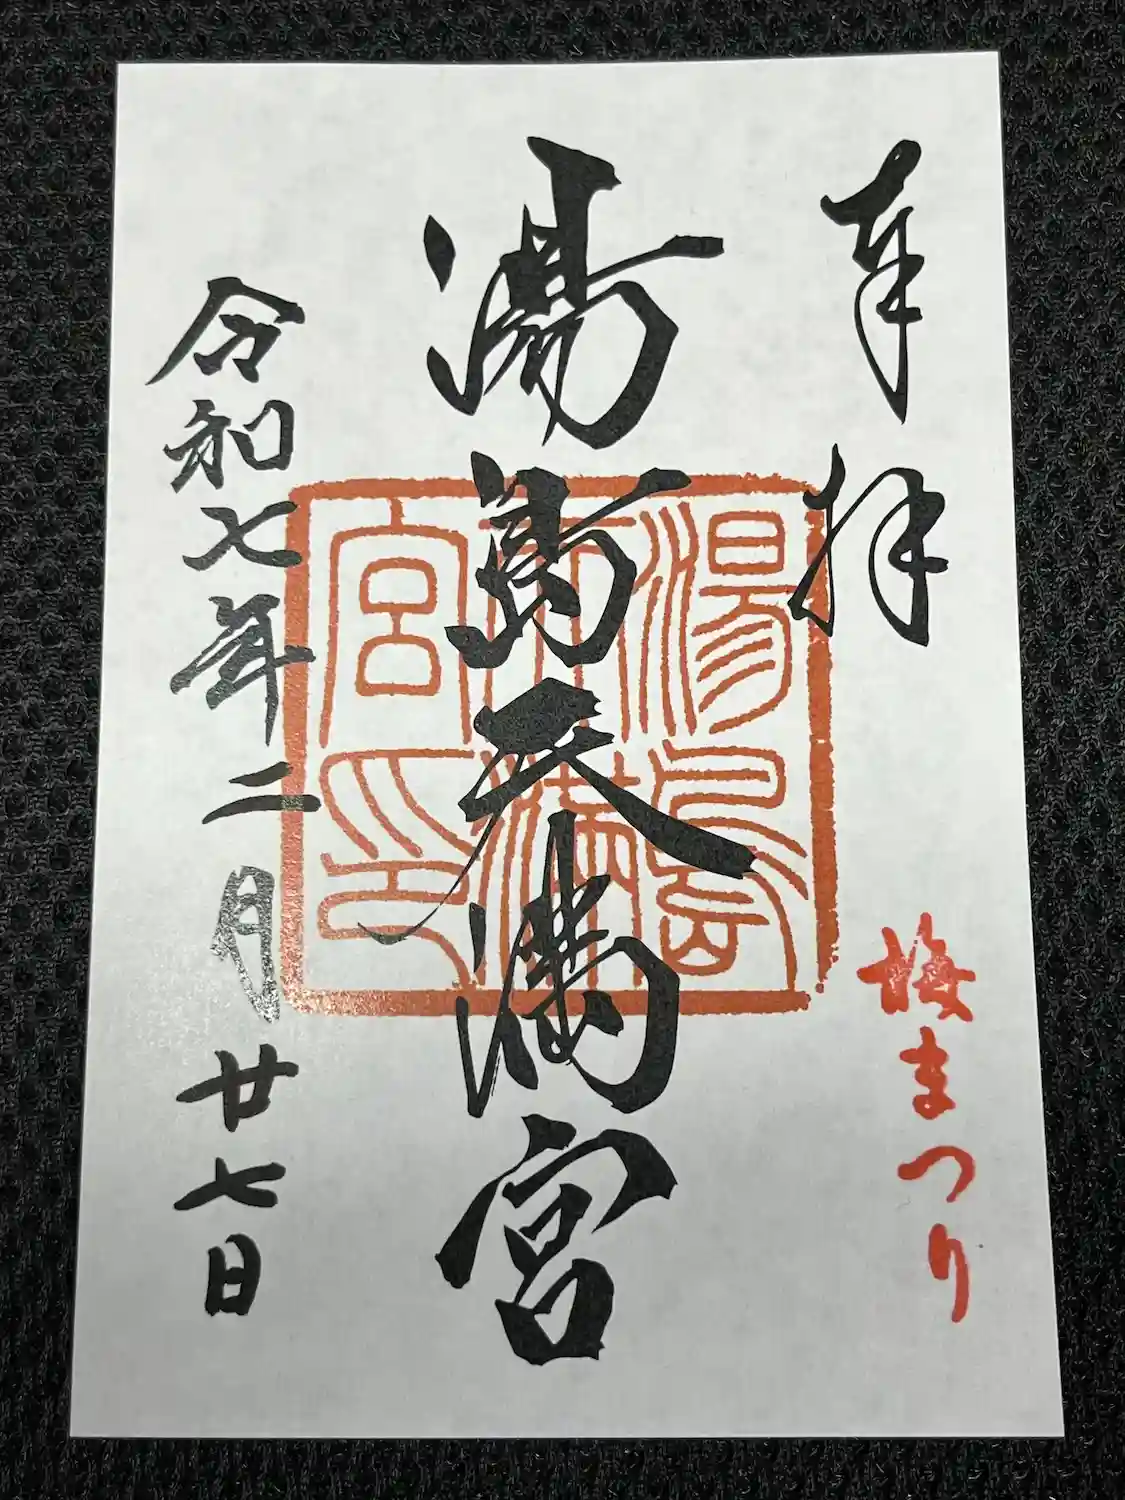 奉拝
梅まつり
湯島天満宮
湯島天満宮印
令和七年二月廿七日